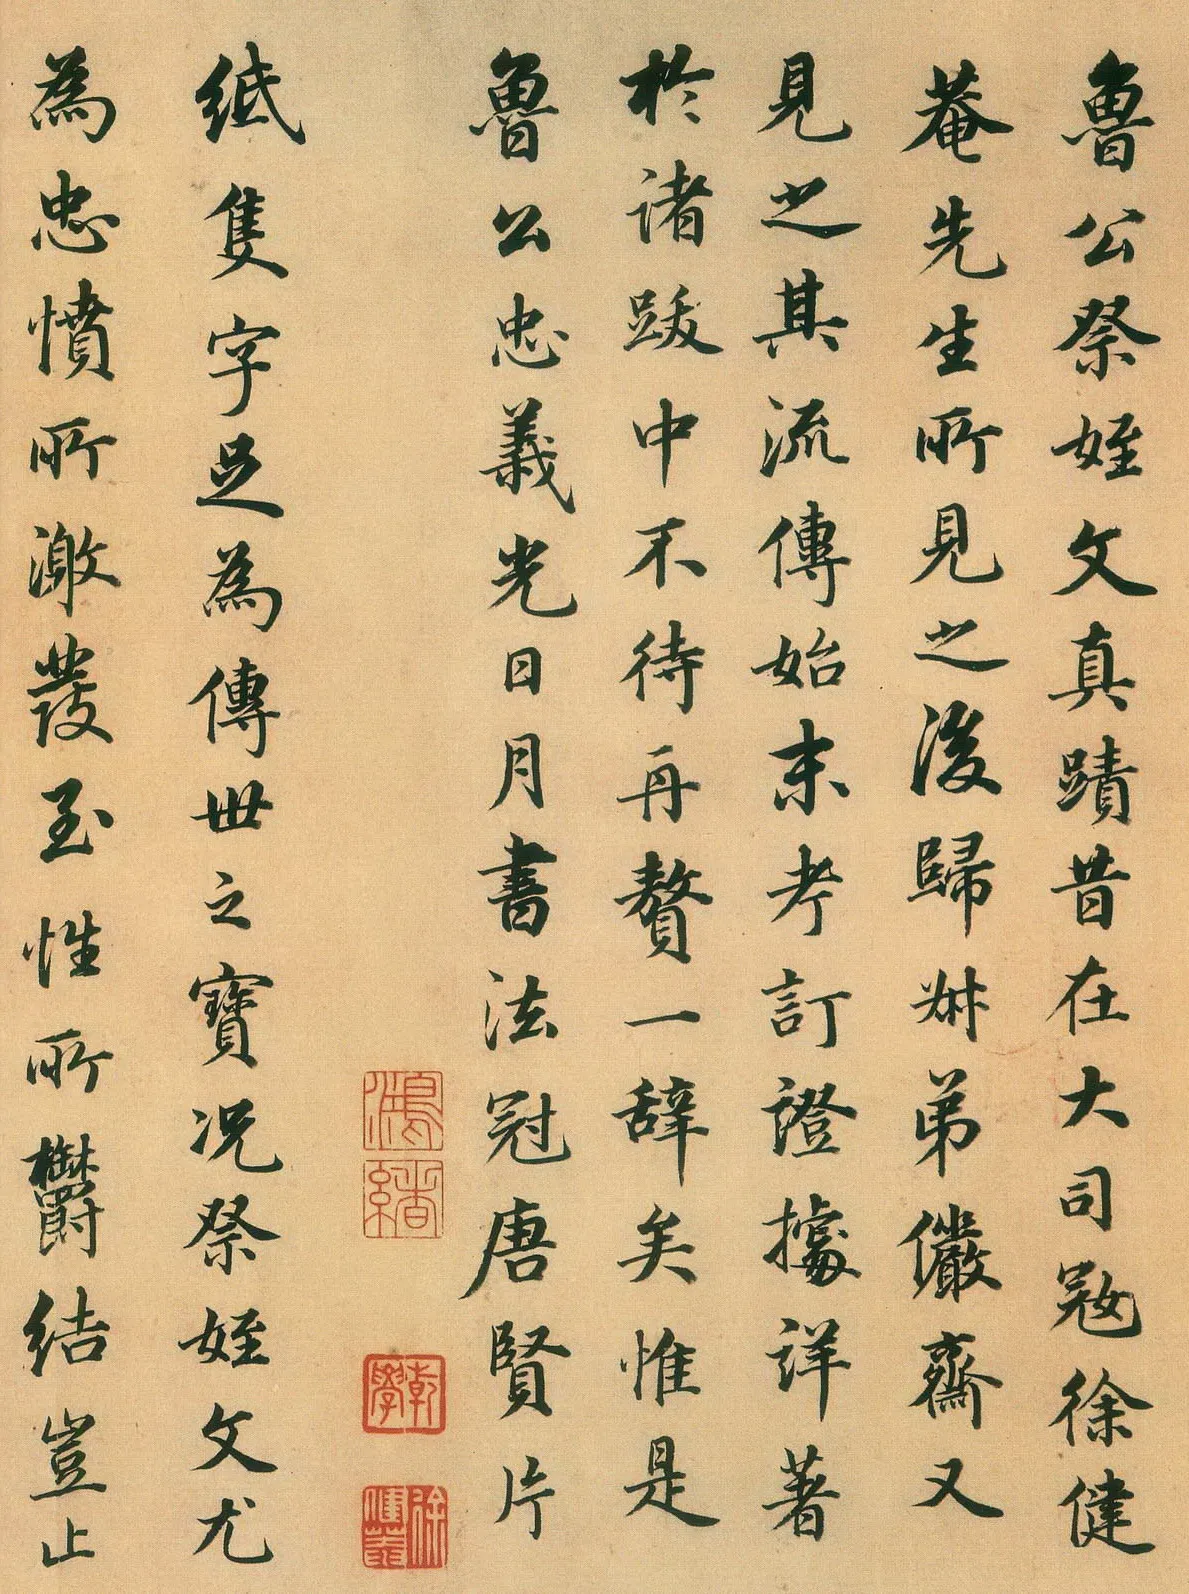 魯公祭姪文真蹟昔在大司寇徐健
菴先生所見之後歸叔弟儼齋又
見之其流傳始末考訂證據詳著
於諸跋中不待再贅一辭矣惟是
魯公忠義光日月書法冠唐賢片
紙隻字足為傳世之寶況祭姪文尤
為忠憤所激發至性所鬱結豈止
乾學
徐健菴